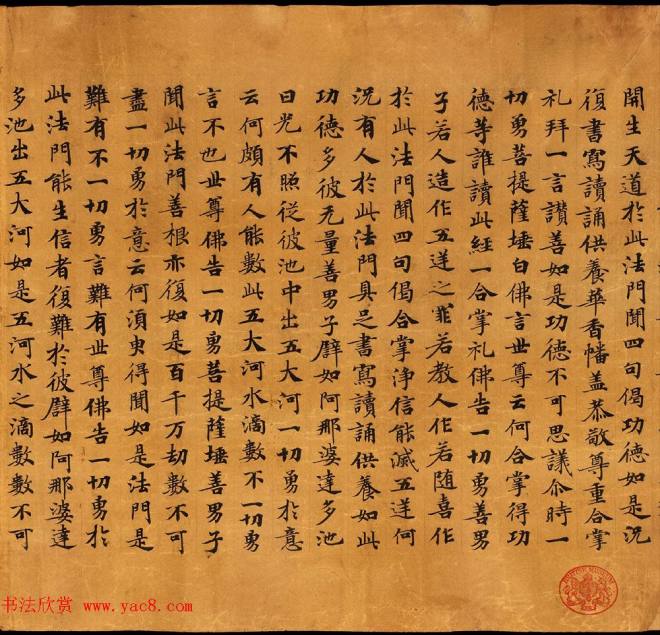 開生天道於此法門聞四句偈功德如是況
復書寫讀誦供養華香幡盖恭敬尊重合掌
礼拜一言讚善如是功德不可思議尒時一
切勇菩提薩埵白佛言世尊云何合掌得功
德等誰讀此經一合掌礼佛告一切勇善男
子若人造作五逆之罪若教人作若随喜作
於此法門聞四句偈合掌淨信能滅五逆何
況有人於此法門具足書寫讀誦供養如此
功德多彼无量善男子譬如阿那婆達多池
日光不照從彼池中出五大河一切勇於意
云何頗有人能數此五大河水滴數不一切勇
言不也世尊佛告一切勇菩提薩埵善男子
聞此法門善根亦復如是百千万劫數不可
盡一切勇於意云何須臾得聞如是法門是
難有不一切勇言難有世尊佛告一切勇於
此法門能生信者復難於彼譬如阿那婆達
多池出五大河如是五河水之滴數數不可
书法欣赏 www.yac8.com